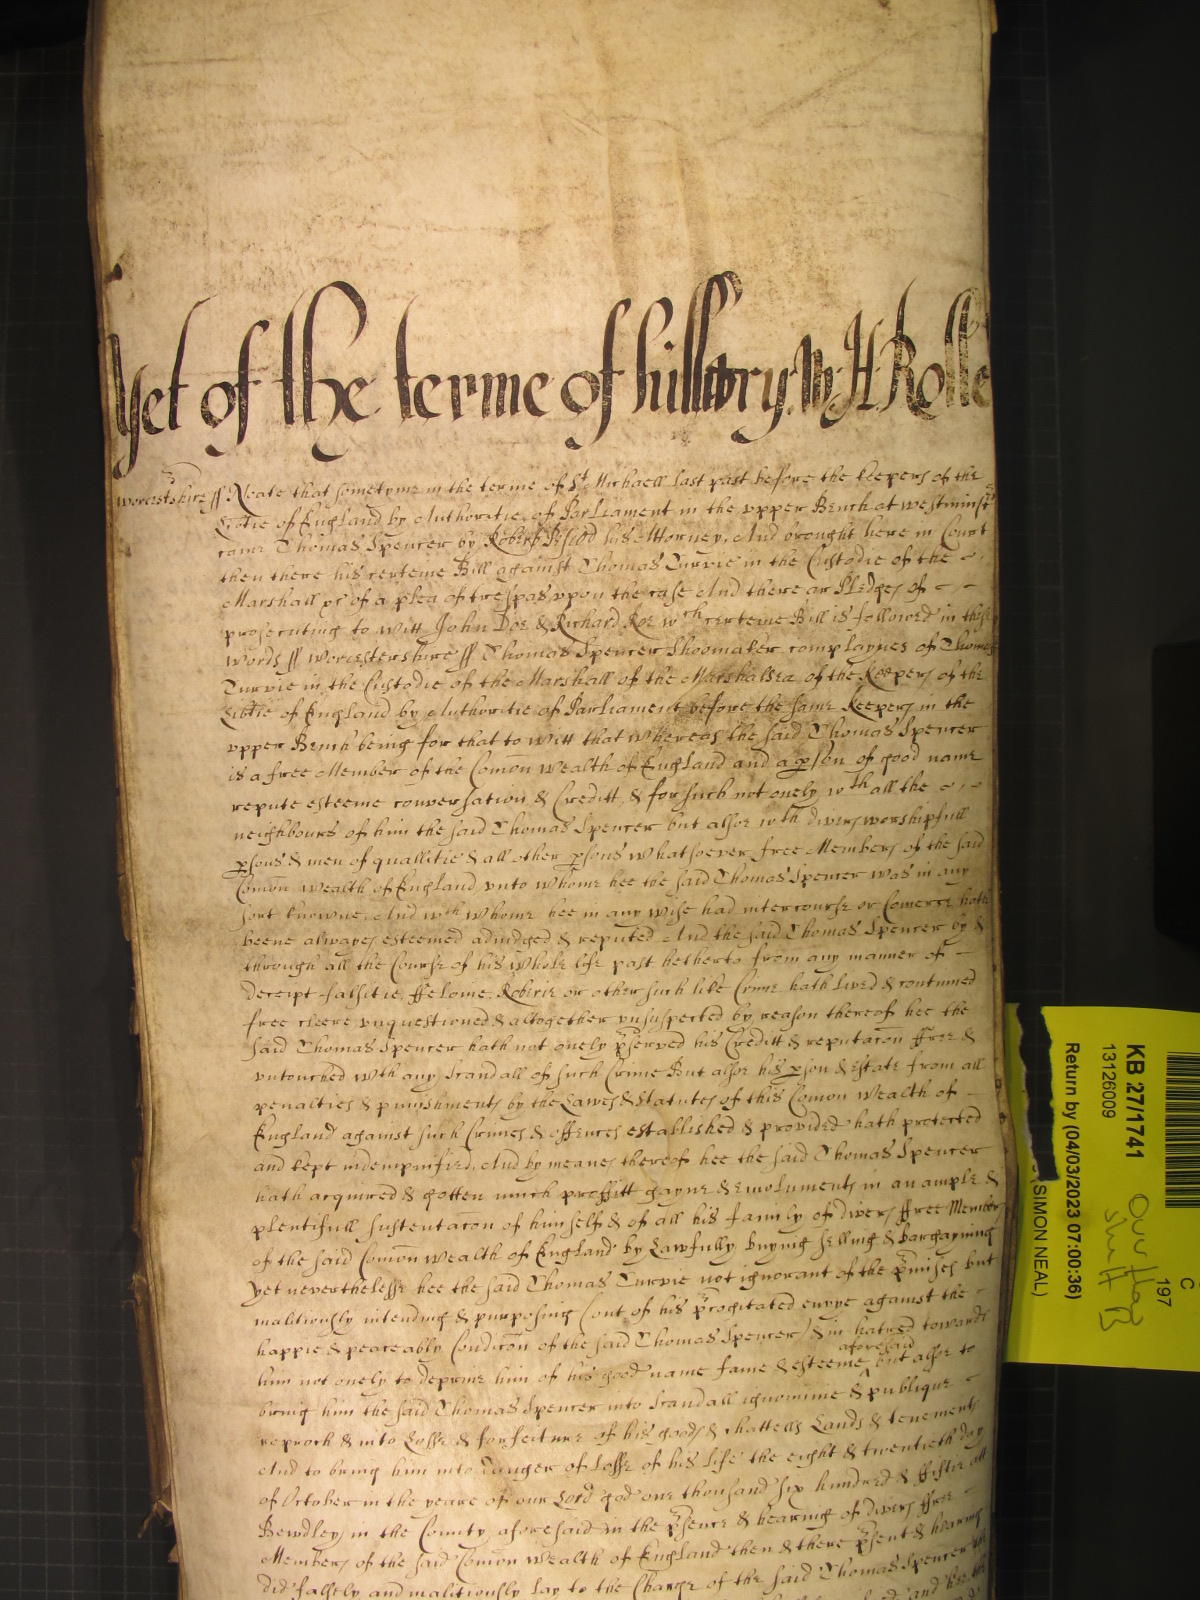 Yet of the terme of hillary W. H. Rolle
Worcestshire ss Neate that sometyme in the terme of St Michaell last past before the keepers of the
Lib͠tie of England by Authoritie of Parliament in the vpper Bench at westminstr
came Thomas Spencer by Robert his Attorney, And brought here in Court
then there his certeine Bill against Thomas Turvie in the Custodie of the
Marshall &c of a plea of trespas vpon the case And there ar Pledges of
prosecuting to witt John Doe & Richard Roe wch certeine Bill is followed in thise
words ss Worcestershire ss Thomas Spencer Shoomaker complaynes of Thomas
Turvie in the Custodie of the Marshall of the Marshalsea of the Keepers of the
Lib͠tie of England by Authoritie of Parliament before the same Keepers in the
vpper Bench being for that to witt that whereas the said Thomas Spencer
is a free Member of the Com̄on wealth of England and a p̱son of good name
repute esteeme conversation & Creditt & for such not onely wth all the
neighbours of him the said Thomas Spencer but alsoe wth divers worshipfull
p̱sons & men of quallitie & all other p̱sons whatsoever free Members of the said
Com̄on wealth of England vnto whome hee the said Thomas Spencer was in any
sort knowne, And wth whome hee in any wise had intercourse or Comerce hath
beene alwayes esteemed adiudged & reputed And the said Thomas Spencer by &
through all the Course of his whole life past hetherto from any manner of
deceipt falsitie ffelonie Roberie or other such like Crime hath lived & continued
free cleere vnquestioned & altogether vnsuspected by reason thereof hee the
said Thomas Spencer hath not onely p̄served his Creditt & reputac̄on ffree &
vntouched wth any scandall of such Crime But alsoe his p̱son & estate from all
penalties & punishments by the Lawes & Statutes of this Com̄on wealth of
England against such Crimes & offences established & provided hath protected
and kept indempnified, And by meanes thereof hee the said Thomas Spencer
hath acquired & gotten much proffitt gayne & emoluments in an ample &
plentifull sustentac̄on of himself & of all his family of divers ffree Members
of the said Com̄on wealth of England by Lawfully buying selling & bargayning
Yet neverthelesse hee the said Thomas Turvie not ignorant of the p̄mises but
malitiously intending & purposing (out of his p̄cogitated envye against the
happie & peaceably Condic̄on of the said Thomas Spencer) & in hatred towards
him not onely to deprive him of his good name fame & esteeme aforesaid but alsoe to
bring him the said Thomas Spencer into scandall ignominie & publique
reproch & into Losse & forfeiture of his goods & chattells Lands & tenements
And to bring him into danger of Losse of his Life the eight & twentieth day
of October in the yeare of our Lord god one thousand six hundred & ffiftie att
Bewdley in the County aforesaid in the p̄sence & hearing of divers ffree
Members of the said Com̄on wealth of England then & there p̄sent & hearing
did falsely and malitiously lay to the Charge of the said Thomas Spencer
C
197
KB 27/1741
13126009
Return by (04/03/2023 07:00:36)
(SIMON NEAL)